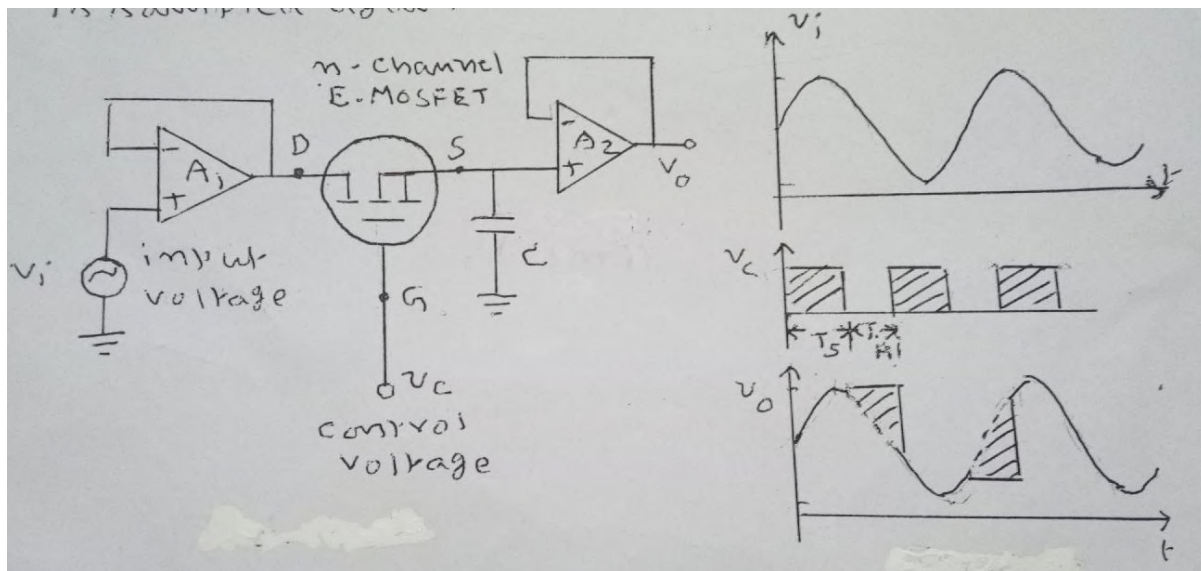 n-channel
E-MOSFET
-
A1
+
D
S
-
A2
+
vo
vi
input
voltage
C
G
vc
control
voltage
vi
t
vc
Ts
vo
t